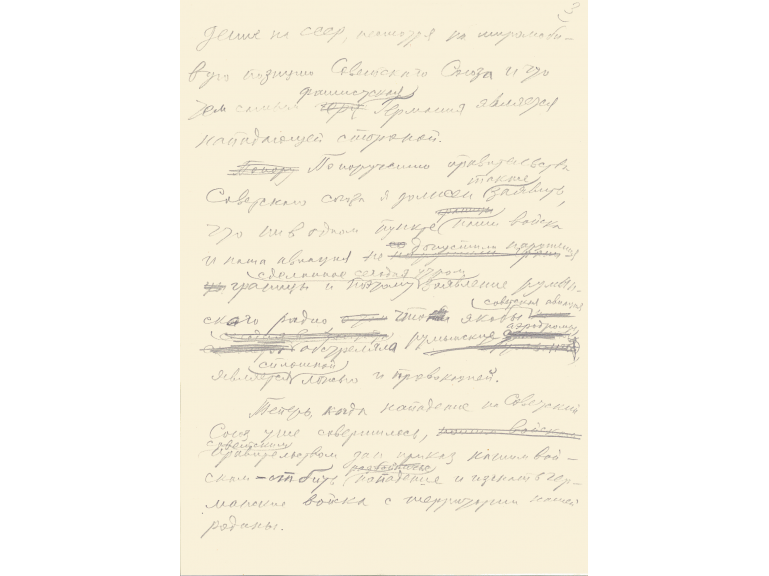 3
дение на СССР, несмотря на миролюби-
вую позицию Советского Союза и что
фашистская
тем самым Германия является
нападающей стороной.
По поручению правительства
также
Советского союза я должен заявить,
что ни в одном пункте наши войска
и наша авиация не допустили нарушения
сделанное сегодня утром
границы и поэтому заявление румын-
советская авиация
ского радио что якобы
аэродромы
обстреляла румынские
сплошной
является ложью и провокацией.
Теперь, когда нападение на Советский
Союз уже совершилось,
советским
правительством дан приказ нашим вой-
разбойничье
скам – отбить нападение и изгнать гер-
манские войска с территории нашей
родины.